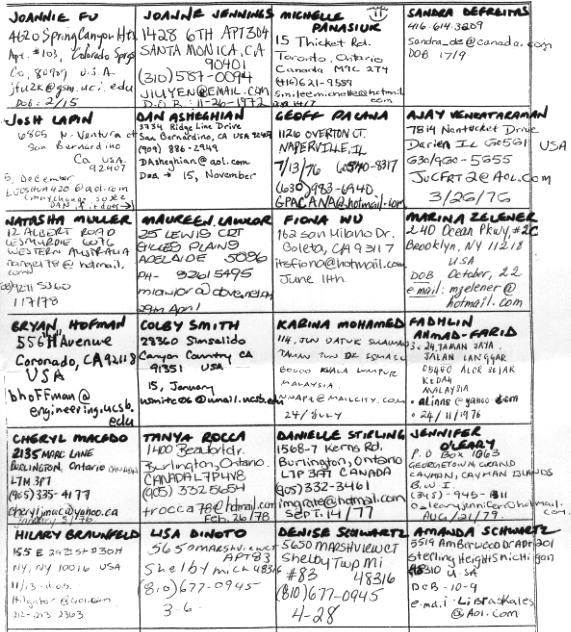 JOANNIE FU
4620 Spring Canyon Hts
Apt. #103, Colorado Sprgs
Co, 80907 U.S.A.
jfu2k@gsm.uci.edu
DOB: 2/15
JOANNE JENNINGS
1428 6TH APT304
SANTA MONICA, CA
90401
(310)587-0094
JILLYEN@EMAIL.COM
D.O.B.: 11-26-1972
MICHELLE
PANASIUK
15 Thicket Rd.
Toronto, Ontario
Canada M9C 2T4
(416)621-9589
smileemichelle@hotmail
.com
SANDRA DEFREITAS
416-614-3209
sandra_de@canada.com
DOB 17/9
JOSH LAPIN
N. Ventura ct
San Bernardino
Ca USA
92407
5, December
DAN ASHEGHIAN
3734 Ridge Line Drive
San Bernardino, CA USA 92407
(909) 886-2949
DAsheghian@aol.com
DOB → 15, November
GEOFF PACANA
1126 OVERTON CT.
NAPERVILLE, IL
7/13/76 60540-8317
(630)983-6940
GPACANA@hotmail.com
AJAY VENKATARAMAN
7814 Nantucket Drive
Darien IL 60561 USA
630/920-5655
JUCFRT2@AOL.COM
3/26/76
NATASHA MULLER
12 ALBERT ROAD
LESMURDIE 6076
WESTERN AUSTRALIA
hotmail.
com
1/7/78
MAUREEN LAWLOR
25 LEWIS CRT
GILLES PLAINS
ADELAIDE 5086
PH- 82615495
29th April
FIONA WU
162 San Milano Dr.
Goleta, CA 93117
itsfiona@hotmail.com
June 11th
MARINA ZELENER
240 Ocean Pkwy #2C
Brooklyn, NY 11218
USA
DOB October, 22
email: mzelener@
hotmail.com
BRYAN HOFMAN
556 "H" Avenue
Coronado, CA 92118
USA
bhoffman@
engineering.ucsb.
edu
COLBY SMITH
28360 Simsalido
Canyon Country CA
91351 USA
15, January
usmitcos@umail.ucsb.edu
KARINA MOHAMED
114, JLN DATUK SULAIMAN
TAMAN TUN DR ISMAIL
60000 KUALA LUMPUR
MALAYSIA.
NMAPA@MAILCITY.COM
24/JULY
FADHLIN
AHMAD-FARID
3.24, TAMAN JAYA
JALAN LANGGAR
05400 ALOR SETAR
KEDAH
MALAYSIA
• alinns@yahoo.com
• 24/11/1976
CHERYL MACEDO
2135 MARC LANE
BURLINGTON, Ontario CANADA
L7M 3P7
(905)335-4177
cheryljmac@yahoo.ca
January 5/76
TANYA ROCCA
1400 Beaufort dr.
Burlington, Ontario.
CANADA L7P4V8
(905) 3325654
trocca78@hotmail.com
Feb. 26/78
DANIELLE STIRLING
1568-7 Kerns Rd.
Burlington, Ontario
L7P 3A7 CANADA
(905)332-3461
imgrate@hotmail.com
SEPT. 14/77
JENNIFER
O'LEARY
P.O Box 1063
GEORGETOWN, GRAND
CAYMAN, CAYMAN ISLANDS
B.W.I.
(345)-945-1811
olearyjennifer@hotmail.
com
AUG/21/77
HILARY BRAUNFELD
155 E 29th St #30H
NY, NY 10016 USA
11/13 d.o.b.
hilygator@aol.com
212-213-2303
LISA DINOTO
5650 MARSHVIEW CT
APT 83
Shelby mich 48316
(810)677-0945
3-6
DENISE SCHWARTZ
5650 MARSHVIEW CT
Shelby Twp Mi
#83 48316
(810)677-0945
4-28
AMANDA SCHWARTZ
5519 Amberwood Dr Apt 201
Sterling Heights Michigan
48310 U.SA
DOB - 10-9
e-mail - LiBraskales
@AOL.COM